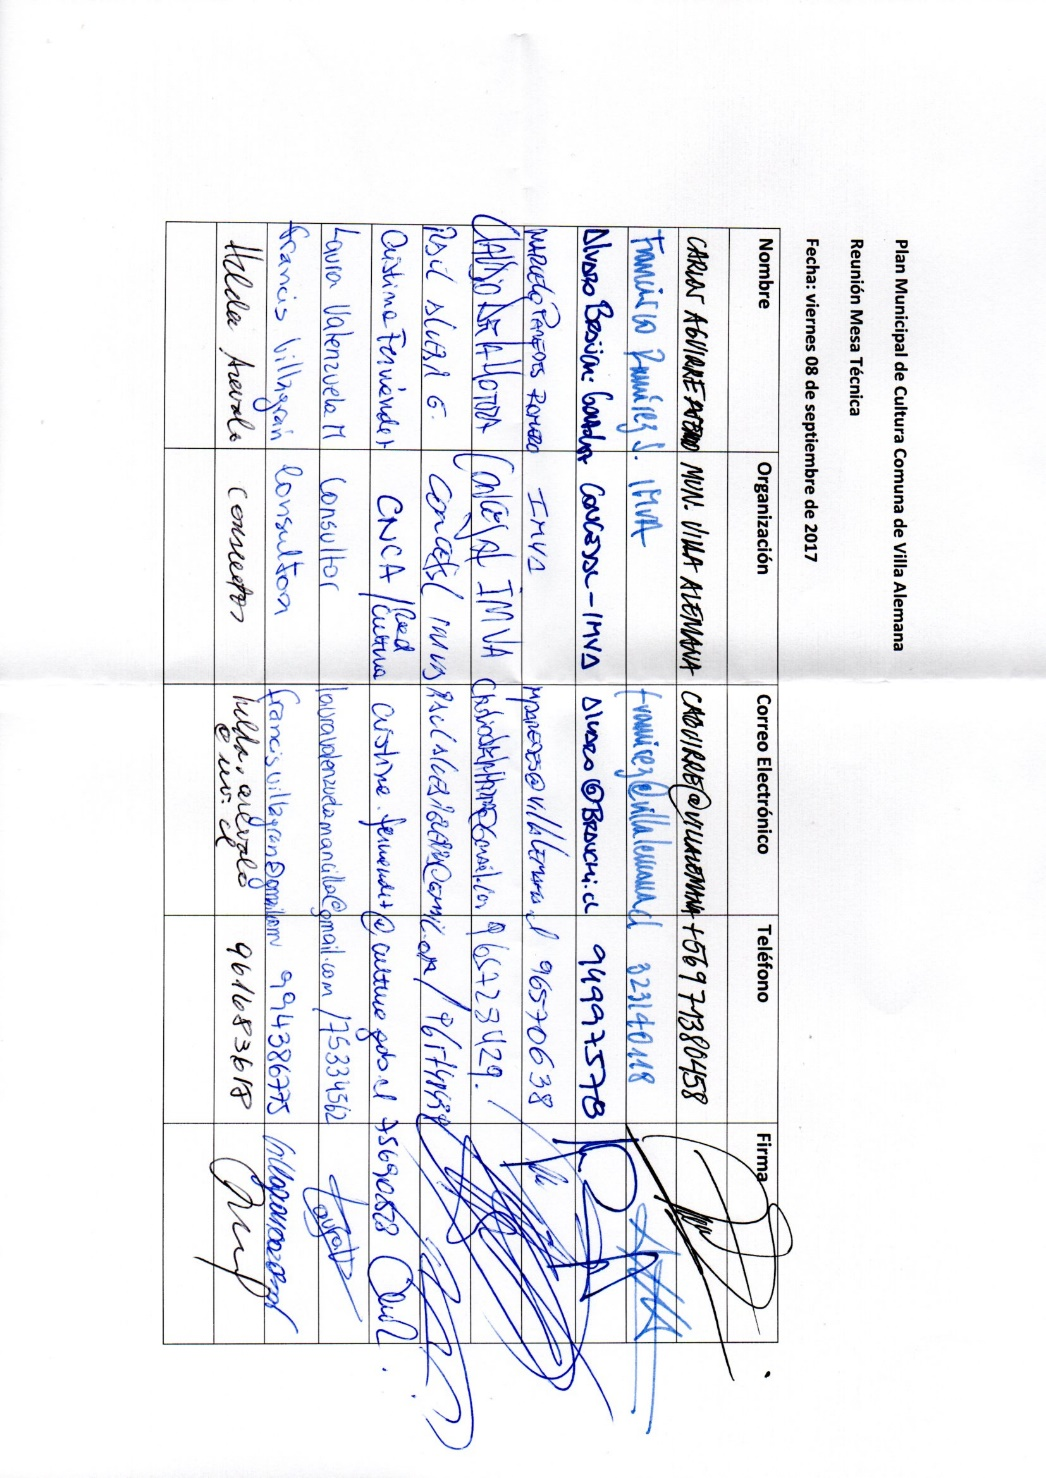 Plan Municipal de Cultura Comuna de Villa Alemana
Reunión Mesa Técnica
Fecha: viernes 08 de septiembre de 2017
Nombre Organización Correo Electrónico Teléfono Firma
CARLOS AGUIRRE MUN. VILLA ALEMANA CAGUIRRE@VILLALEMANA +569 71380458
Francisco Ramírez S. IMVA framirez@villalemana.cl 323140118
Alvaro Brauchi CONCEJAL-IMVA Alvaro@Brauchi.cl 949975778
MARCELO PAREDES ROMERO IMVA mparedes@villalemana.cl 96570638
CONCEJAL IMVA 965723429.
G. Concejal
Cristina Fernández CNCA / Red Cultura cristina.fernandez@cultura.gob.cl 75690828
Laura Valenzuela M Consultor lauravalenzuelamancilla@gmail.com / 75334562
Francis Villagrán Consultora francisvillagran@gmail.com 994386775
Hilda Arevalo consultor hilda.arevalo @uv.cl 961683618